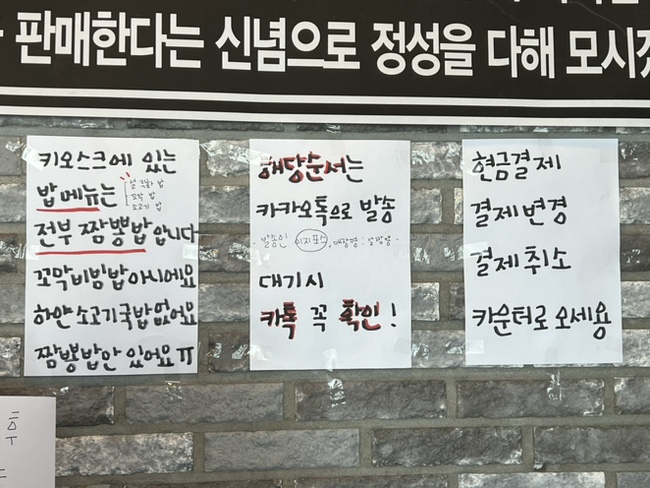 판매한다는 신념으로 정성을 다해 모시
키오스크에 있는
밥메뉴는
꼬막 밥
소고기 밥
전부 짬뽕밥 입니다
꼬막비빔밥아니에요
하얀소고기국밥없어요
짬뽕밥만 있어요ㅠ
해당순서는
카카오톡으로 발송
발송인 이지포스
대기시
카톡 꼭 확인!
현금결제
결제변경
결제취소
카운터로 오세용